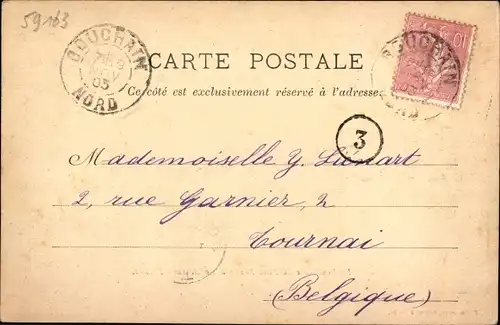 59163
BOUCHAIN
03
NORD
CARTE POSTALE
Ce côté est exclusivement réservé à l'adresse.
BOUCHAIN
10
3
Mademoiselle Y. Lienart
2, rue Garnier, 2
Tournai
(Belgique)